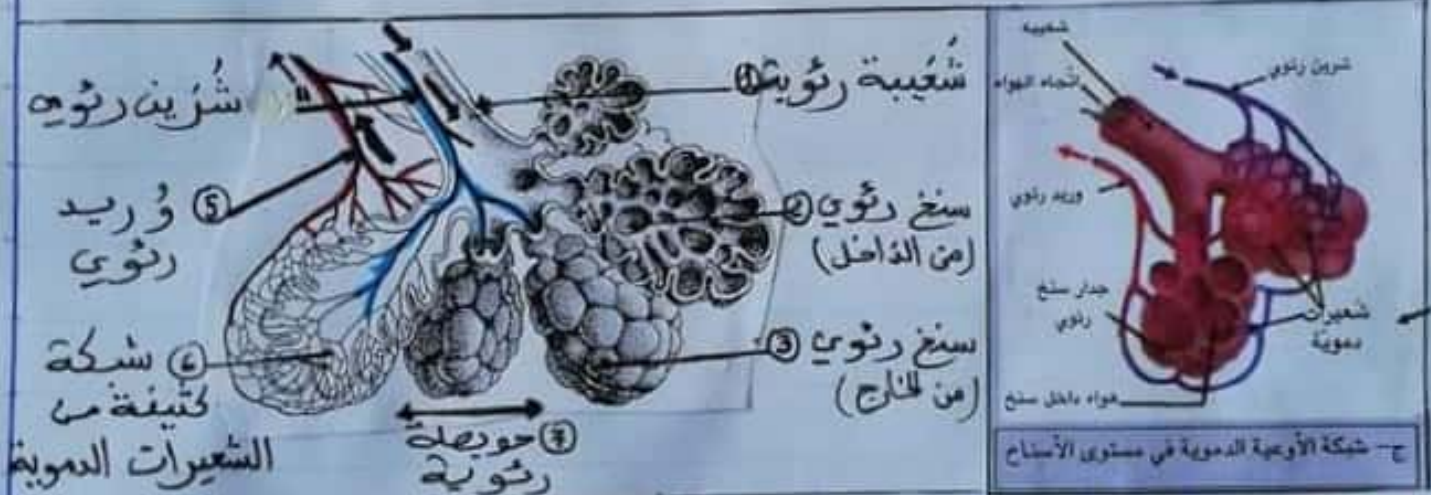 شُعَيبة رئوية ①
سنخ رئوي ②
(من الداخل)
سنخ رئوي ③
(من الخارج)
شُرَين رئوي
⑤ وُريد
رئوي
⑥ شبكة
كثيفة من
الشعيرات الدموية
⑦ حويصلة
رئوية
شعيبه
اتجاه الهواء
شرين رئوي
وريد رئوي
جدار سنخ
رئوي
شعيرات
دموية
هواء داخل سنخ
ج- شبكة الأوعية الدموية في مستوى الأسناخ